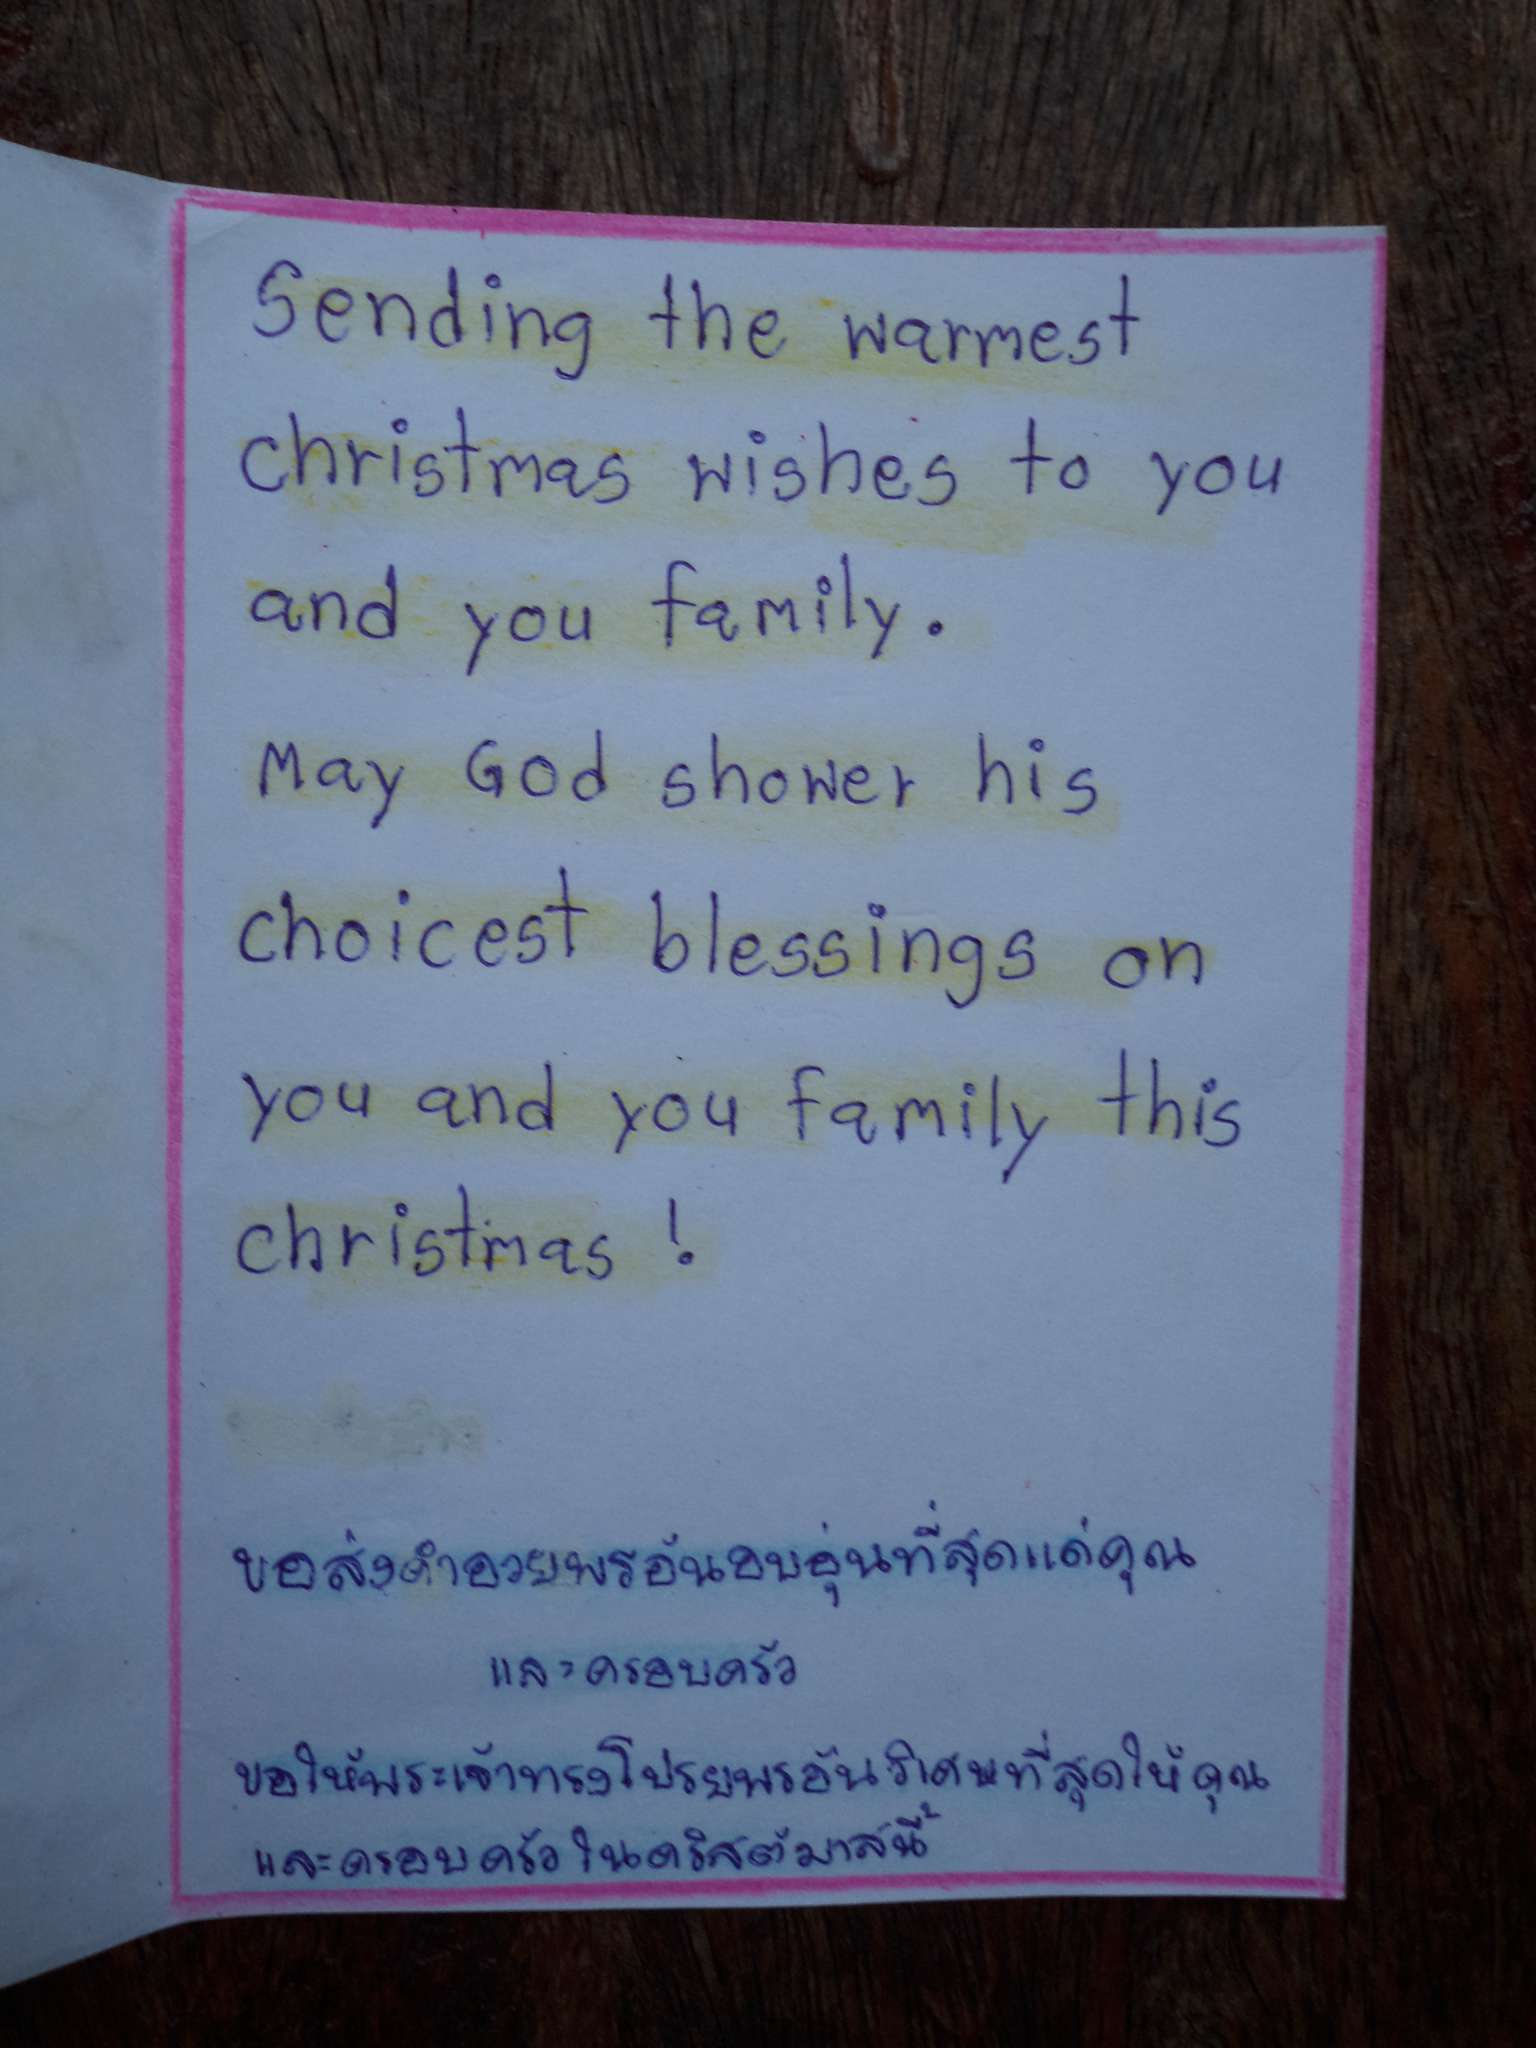 Sending the warmest
christmas wishes to you
and you family.
May God shower his
choicest blessings on
you and you family this
christmas !
ขอส่งคำอวยพรอันอบอุ่นที่สุดแด่คุณ
และครอบครัว
ขอให้พระเจ้าทรงโปรยพรอันวิเศษที่สุดให้คุณ
และครอบครัวในคริสต์มาสนี้